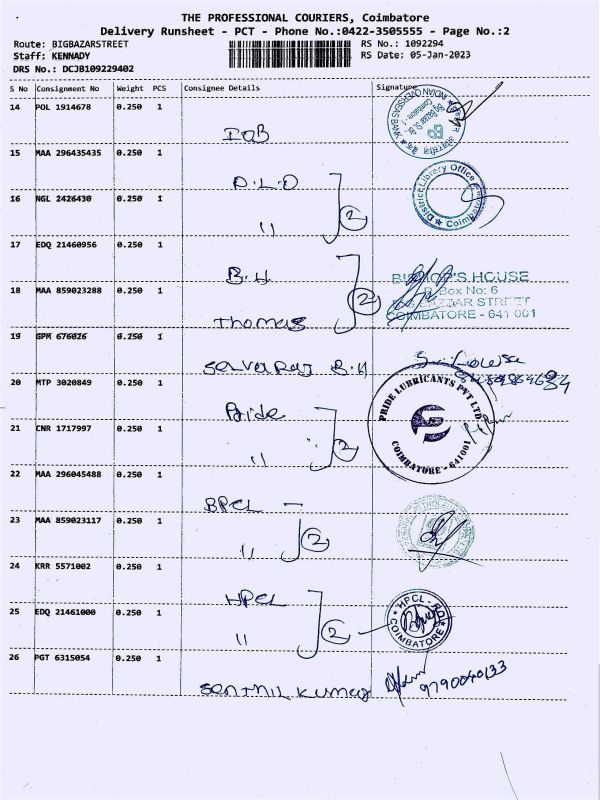 THE PROFESSIONAL COURIERS, Coimbatore
Delivery Runsheet - PCT - Phone No.:0422-3505555 - Page No.:2
Route: BIGBAZARSTREET
RS No.: 1092294
Staff: KENNADY
RS Date: 05-Jan-2023
DRS No.: DCJB109229402
S No Consignment No Weight PCS Consignee Details Signature
14 POL 1914678 0.250 1
IOB
INDIAN OVERSEAS BANK
15 MAA 296435435 0.250 1
D.L.O
District Library Office
Coimbatore
16 NGL 2426430 0.250 1
" 2
17 EDQ 21460956 0.250 1
B.H
BISHOP'S HOUSE
P. Box No: 6
18 MAA 859023288 0.250 1
2
BAZZAR STREET
COIMBATORE - 641 001
Thomas
19 GPM 676026 0.250 1
Selvaraj B.H
20 MTP 3020849 0.250 1
Pride
PRIDE LUBRICANTS PVT LTD
COIMBATORE - 641001
21 CNR 1717997 0.250 1
" 2
22 MAA 296045488 0.250 1
BPCL
23 MAA 859023117 0.250 1
" 2
24 KRR 5571002 0.250 1
HPCL
HPCL - RO
COIMBATORE
25 EDQ 21461000 0.250 1
" 2
26 PGT 6315054 0.250 1
Senthil Kumar
9790040133